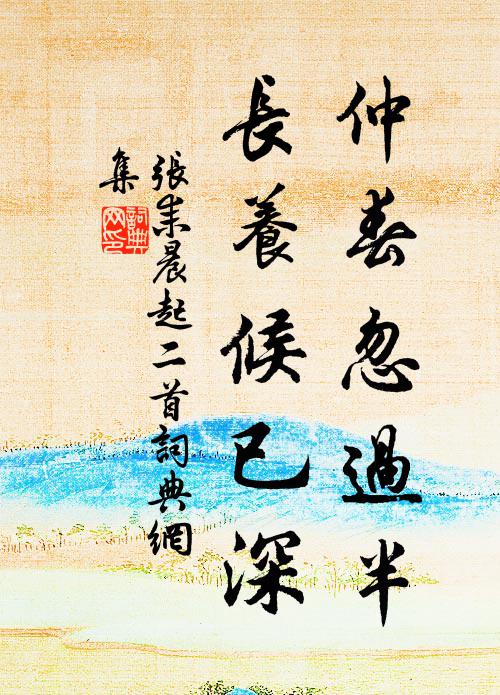 仲春忽過半
長養候已深
張耒晨起二首詞典網
集
詞典
网印